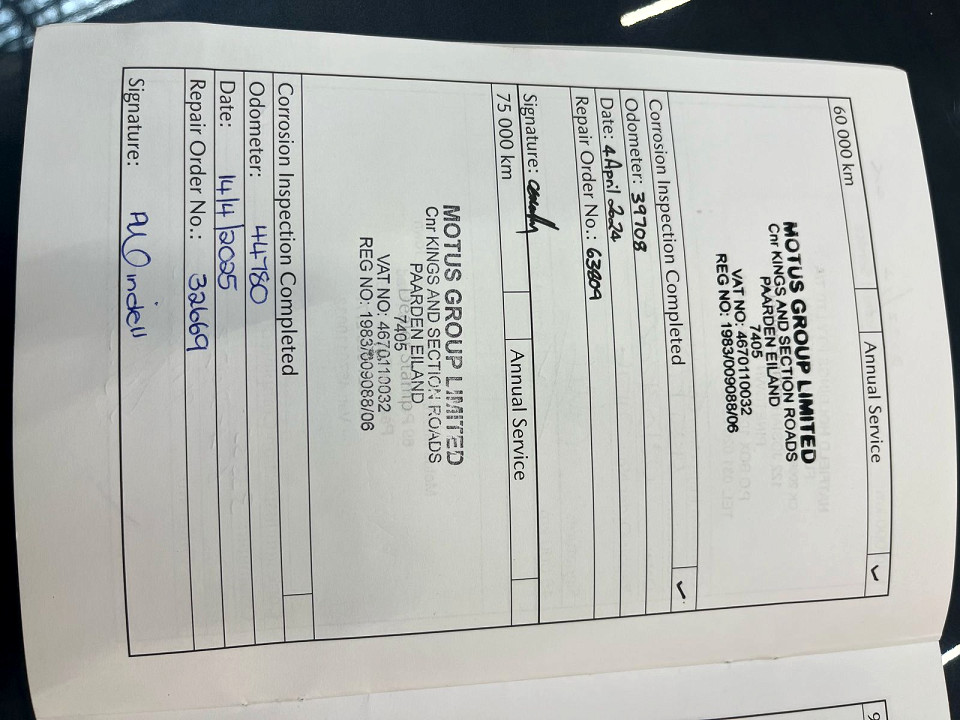 60 000 km Annual Service ✓
MOTUS GROUP LIMITED
Cnr KINGS AND SECTION ROADS
PAARDEN EILAND
7405
VAT NO: 4670110032
REG NO: 1983/009088/06
Corrosion Inspection Completed ✓
Odometer: 39708
Date: 4 April 2024
Repair Order No.: 63809
Signature:
75 000 km Annual Service
MOTUS GROUP LIMITED
Cnr KINGS AND SECTION ROADS
PAARDEN EILAND
7405
VAT NO: 4670110032
REG NO: 1983/009088/06
Corrosion Inspection Completed
Odometer: 44780
Date: 14/4/2025
Repair Order No.: 32669
Signature:
9